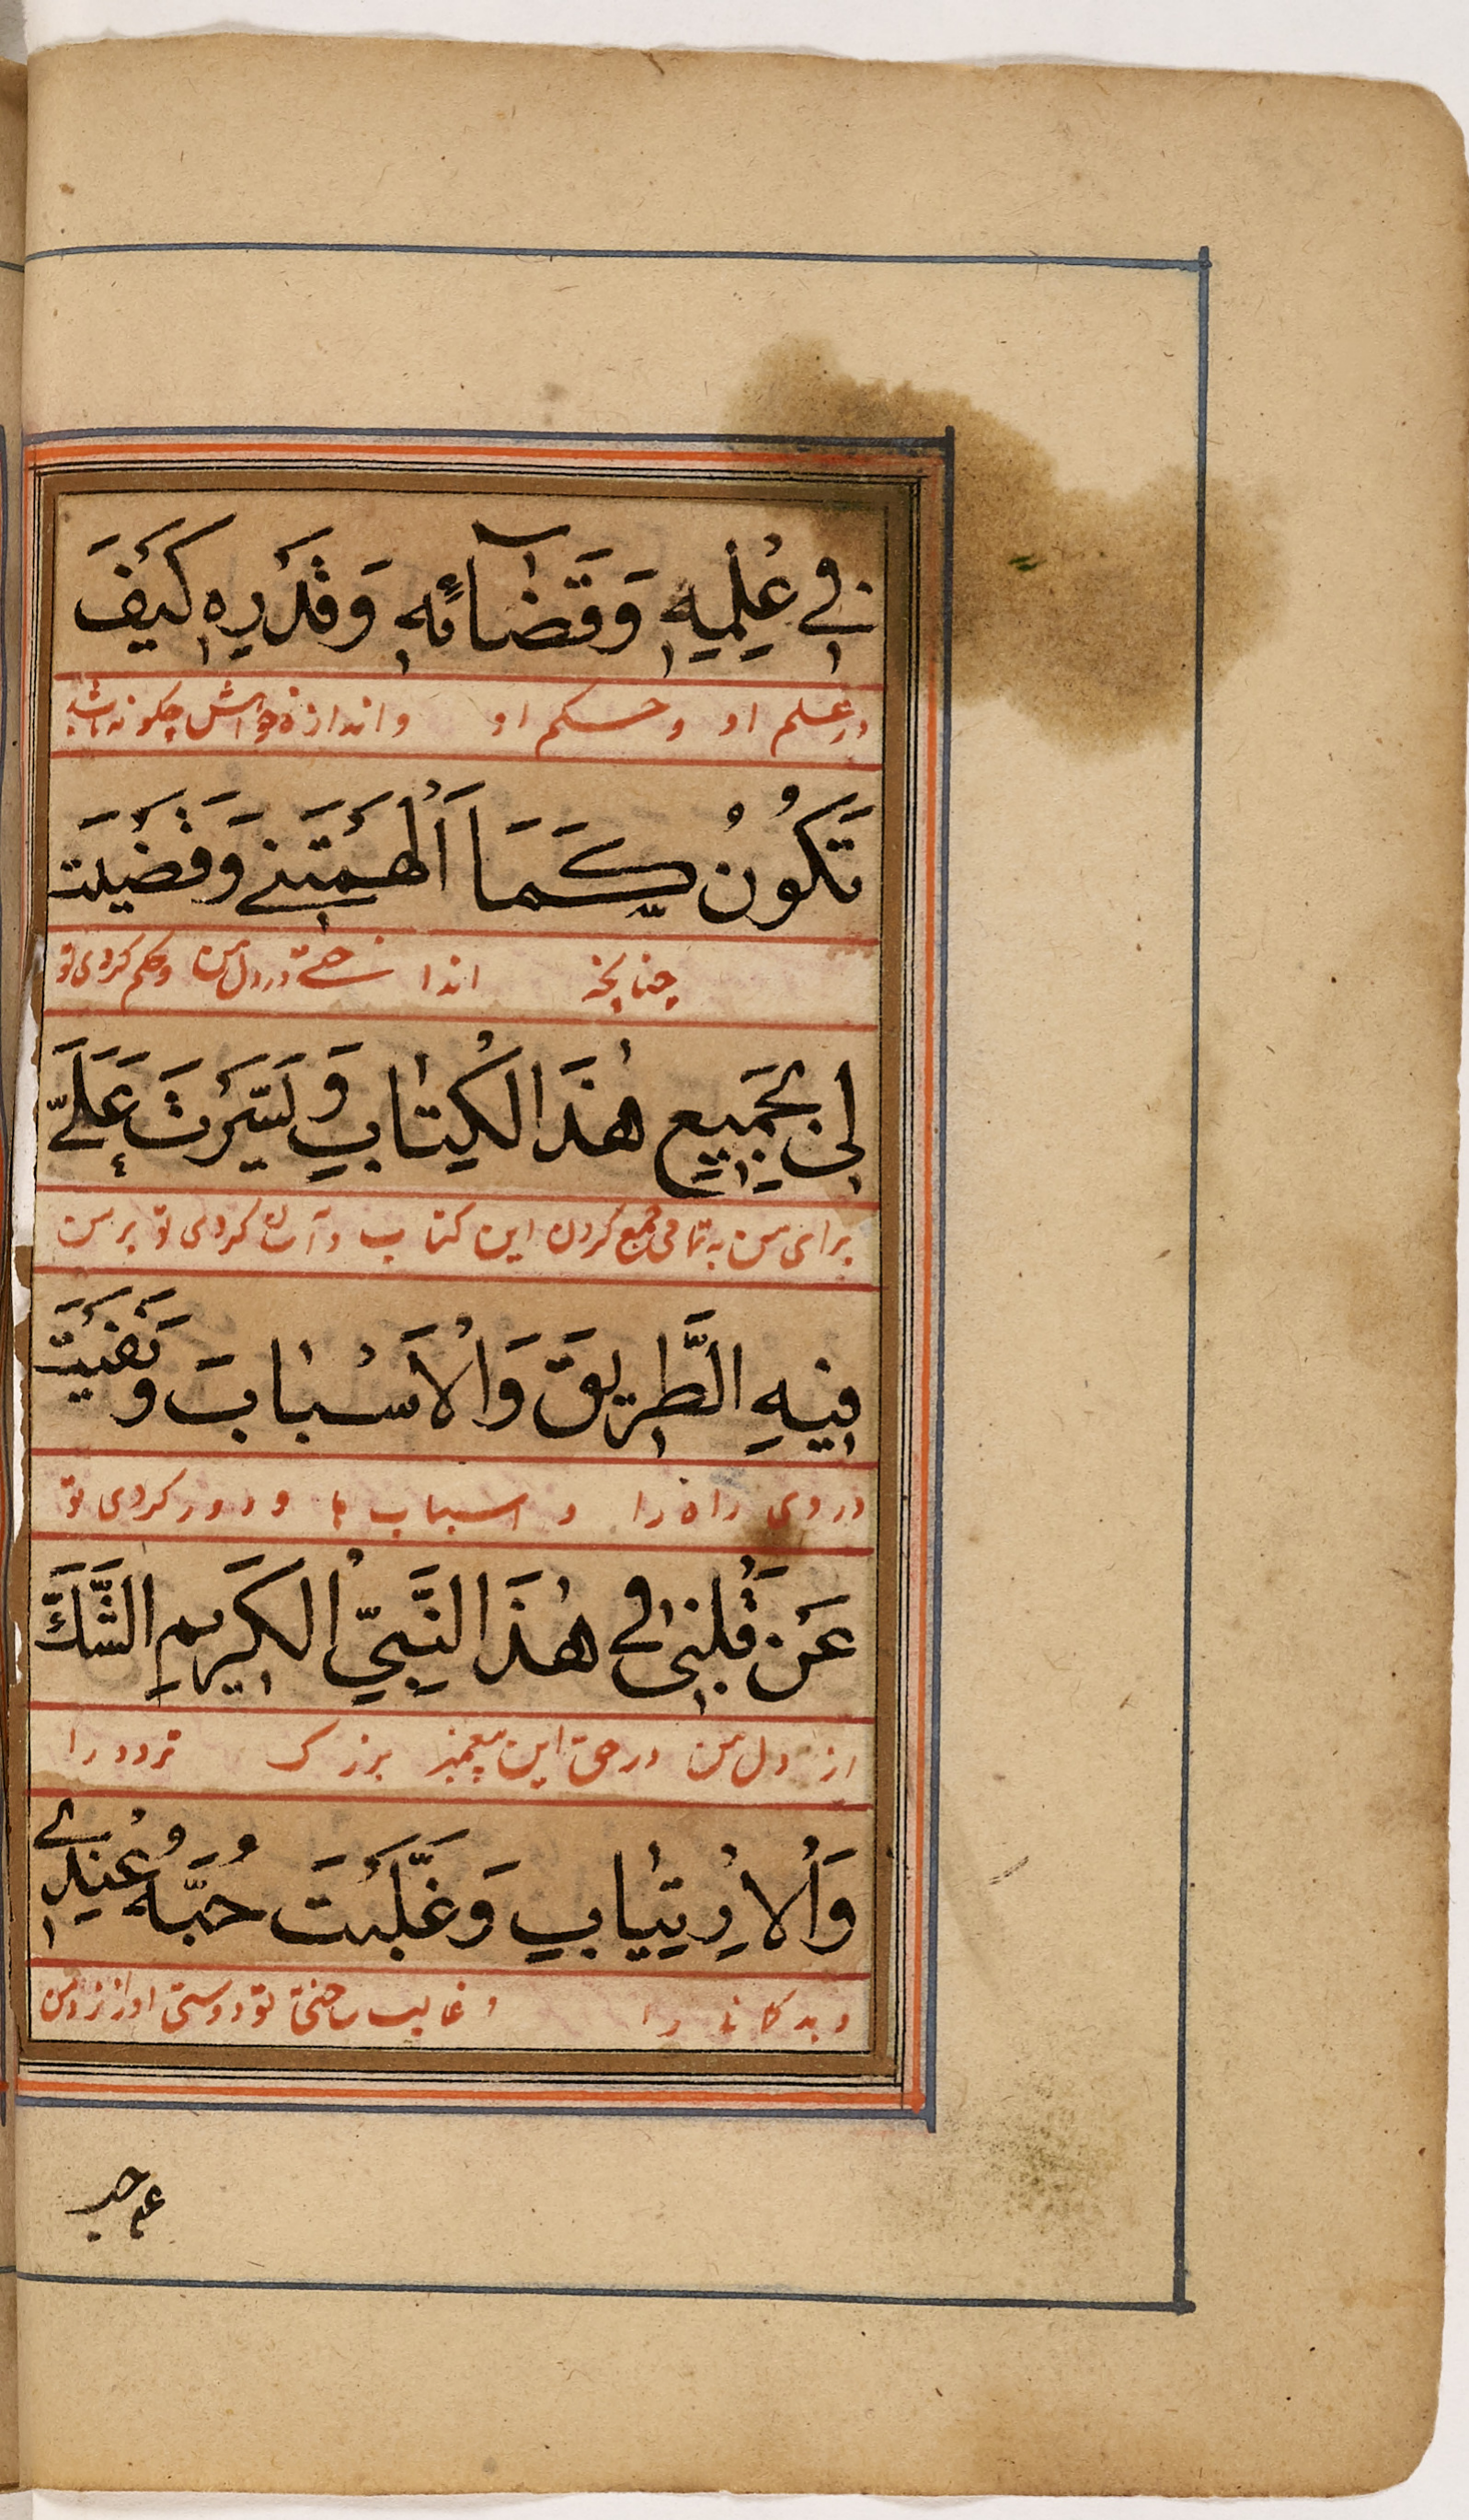 فِي عِلْمِهِ وَقَضَآئِهِ وَقَدَرِهِ كَيْفَ
در علم او و حکم او و اندازه خواهش چکونه باشد
تَكُوْنُ كَمَا اَلْهَمْتَنِيْ وَقَضَيْتَ
چنانچه انداختے در دل من و حکم کردی تو
لِيْ بِجَمِيْعِ هٰذَا الْكِتٰابِ وَيَسَّرْتَ عَلَيَّ
برای من به تمامی جمع کردن این کتاب و آسان کردی تو بر من
فِيْهِ الطَّرِيْقَ وَالْاَسْبٰابَ وَنَفَيْتَ
در وی راه را و اسباب ها و دور کردی تو
عَنْ قَلْبِيْ فِي هٰذَا النَّبِيِّ الْكَرِيْمِ الشَّكَّ
از دل من در حق این پیغمبر بزرک تردد را
وَالْاِرْتِيٰابِ وَغَلَّبْتَ حُبَّهُ عِنْدِيْ
و بدکانے را و غالب ساختی تو دوستی او را نزد من